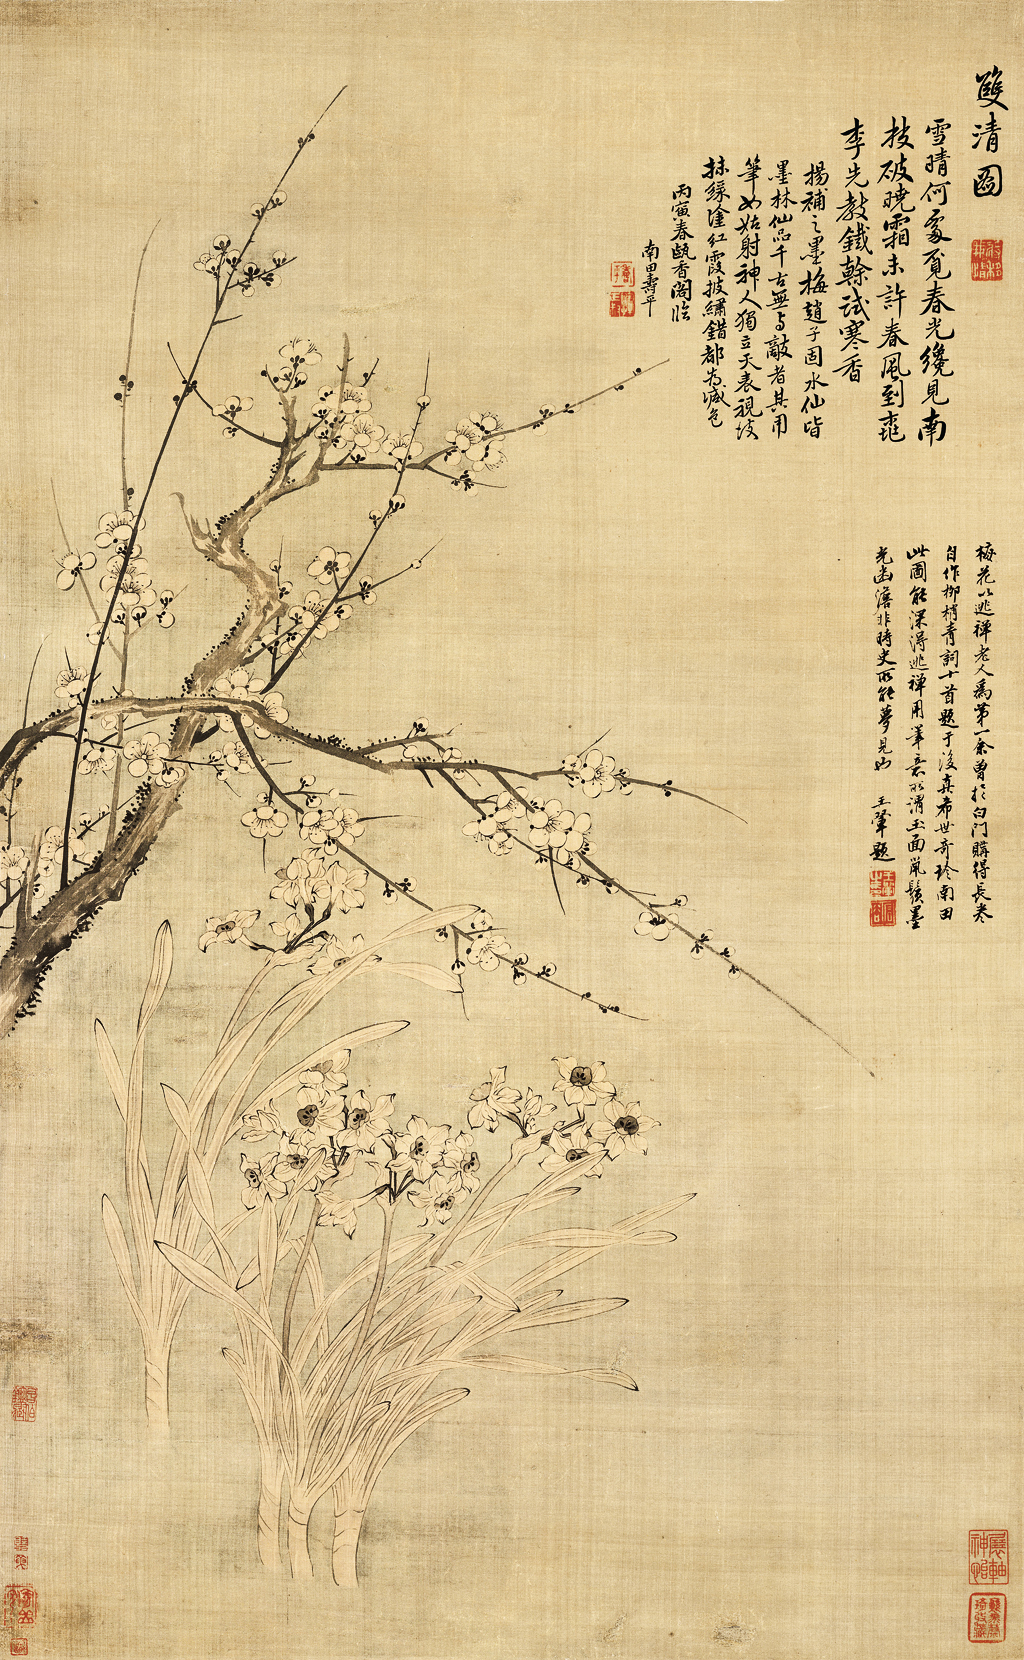 雙清圖
雪晴何處覓春光纔見南
枝破曉霜未許春風到桃
李先教鐵榦試寒香
楊補之墨梅趙子固水仙皆
墨林仙品千古無與敵者其用
筆如姑射神人獨立天表視彼
抹綠塗紅霞披繡錯都為減色
丙寅春甌香閣臨
南田壽平
梅花以逃禪老人為第一余曾於白門購得長卷
自作柳梢青詞十首題于後真希世奇珍南田
此圖能深得逃禪用筆意所謂玉面鼠鬚墨
光幽澹非時史所能夢見也
王翬題